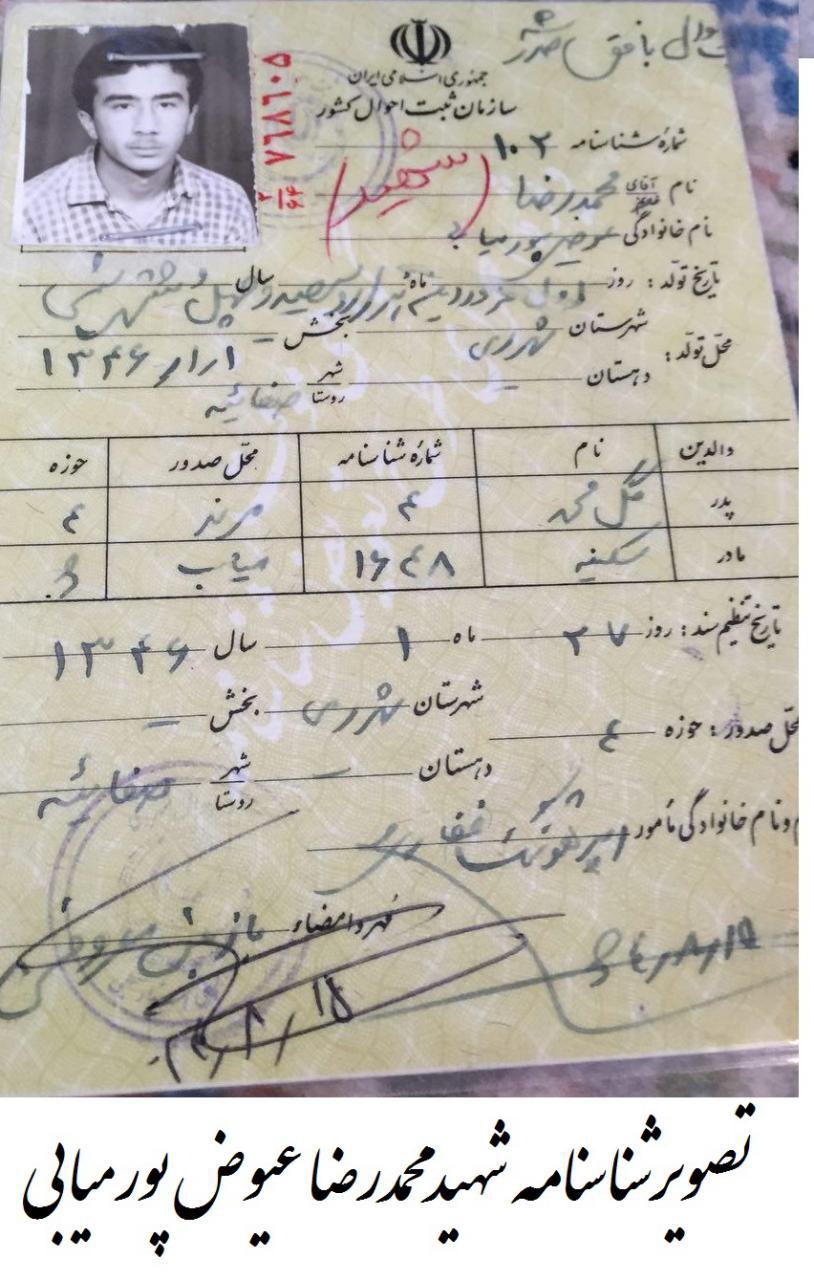 جمهوری اسلامی ایران
سازمان ثبت احوال کشور
۷۶۸۶۰۵
شمارهٔ شناسنامه ۱۰۲
(شهید)
نام آقای محمدرضا
نام خانوادگی عوض پور میابی
تاریخ تولد: روز اول فروردین ماه هزار و سیصد و چهل و شش سال شمسی
محل تولد: شهرستان شهرری بخش –
۱۳۴۶/۱/۱
دهستان – شهر روستا صفائیه
والدین نام شمارهٔ شناسنامه محل صدور حوزه
پدر گل محمد ۴ مرند ۴
مادر سکینه ۱۶۴۸ میاب
تاریخ تنظیم سند: روز ۲۷ ماه ۱ سال ۱۳۴۶
شهرستان شهرری بخش –
محل صدور: حوزه ۴
دهستان – شهر روستا صفائیه
و نام خانوادگی مأمور
مهر و امضاء
تصویر شناسنامه شهید محمدرضا عیوض پور میابی